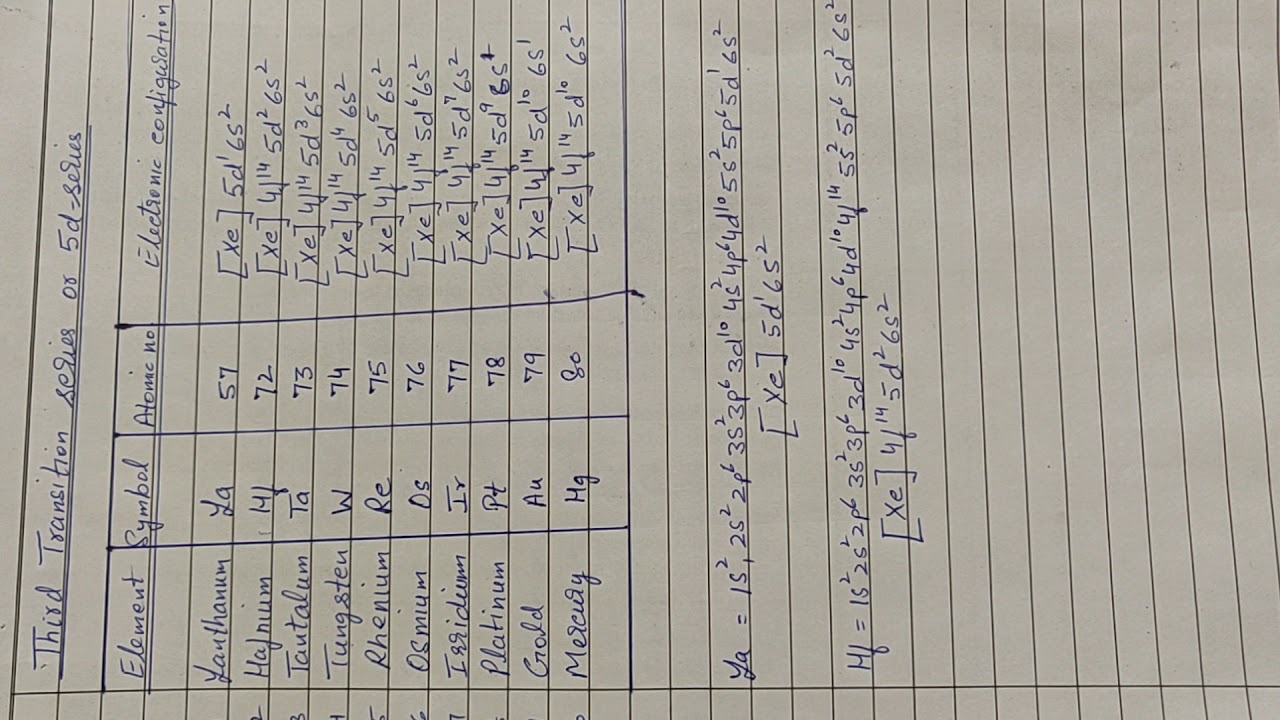 Third Transition series or 5d-series
Element Symbol Atomic no Electronic configuration
Lanthanum La 57 [Xe] 5d¹6s²
2 Hafnium Hf 72 [Xe] 4f¹⁴ 5d² 6s²
3 Tantalum Ta 73 [Xe] 4f¹⁴ 5d³ 6s²
4 Tungsten W 74 [Xe] 4f¹⁴ 5d⁴ 6s²
5 Rhenium Re 75 [Xe] 4f¹⁴ 5d⁵ 6s²
6 Osmium Os 76 [Xe] 4f¹⁴ 5d⁶ 6s²
7 Irridium Ir 77 [Xe] 4f¹⁴ 5d⁷ 6s²
Platinum Pt 78 [Xe] 4f¹⁴ 5d⁹ 6s¹
Gold Au 79 [Xe] 4f¹⁴ 5d¹⁰ 6s¹
Mercury Hg 80 [Xe] 4f¹⁴ 5d¹⁰ 6s²
La = 1s², 2s² 2p⁶ 3s² 3p⁶ 3d¹⁰ 4s² 4p⁶ 4d¹⁰ 5s² 5p⁶ 5d¹ 6s²
[Xe] 5d¹6s²
Hf = 1s² 2s² 2p⁶ 3s² 3p⁶ 3d¹⁰ 4s² 4p⁶ 4d¹⁰ 4f¹⁴ 5s² 5p⁶ 5d² 6s²
[Xe] 4f¹⁴ 5d² 6s²